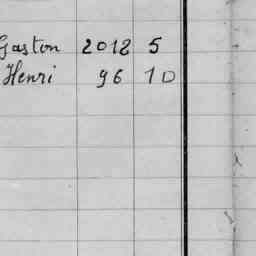 Gaston 2012 5
Henri 96 10